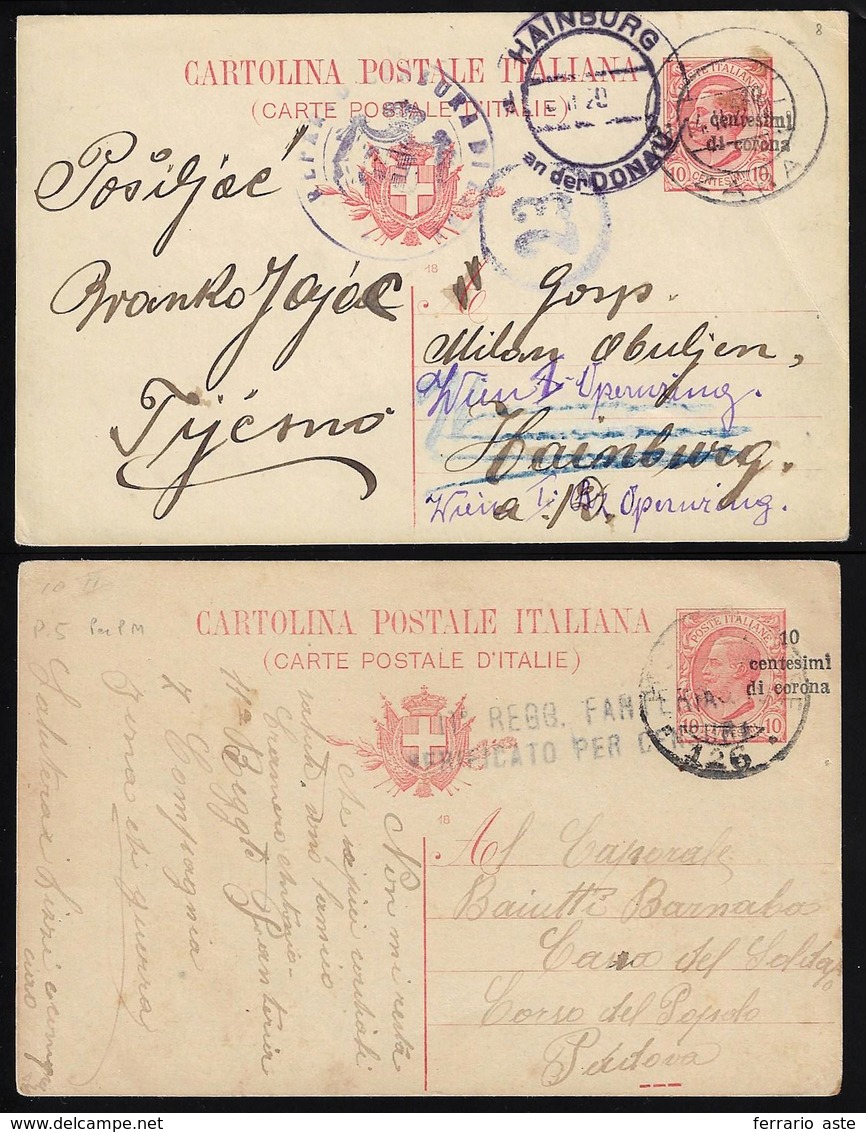 8
CARTOLINA POSTALE ITALIANA
(CARTE POSTALE D'ITALIE)
HAINBURG
an der DONAU
20
23
10
centesimi
di corona
10 CENTESIMI 10
18
Pošiljač
Branko
Tijesno
Gosp.
Milan Obuljen,
Wien I. Opernring.
Hainburg.
Wien I. Opernring.
a. D.
10 II
P.5 Per PM
CARTOLINA POSTALE ITALIANA
(CARTE POSTALE D'ITALIE)
POSTE ITALIANE
10
centesimi
di corona
10 10
126
11° REGG. FANTERIA
VERIFICATO PER CENSURA
18
Al Caporale
Baiutti Barnaba
Casa del Soldato
Corso del Popolo
Padova
Non mi resta
che
saluti
Cramero Antonio
11º Reggto Fanteria
7 Compagnia
Zona di guerra
ciao
ferrario aste